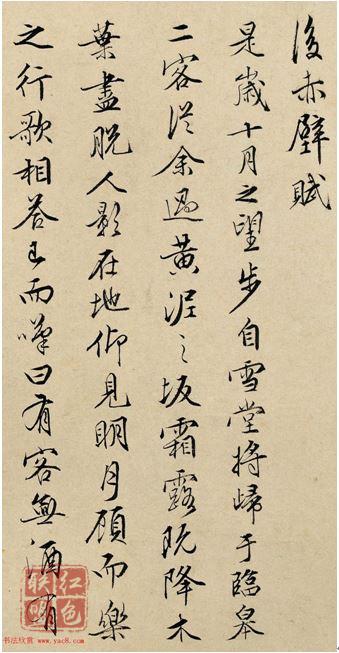 後赤壁賦
是歲十月之望步自雪堂將歸于臨皋
二客從余過黃泥之坂霜露既降木
葉盡脫人影在地仰見明月顧而樂
之行歌相答已而嘆曰有客無酒有
红色
书法欣赏 www.yac8.com